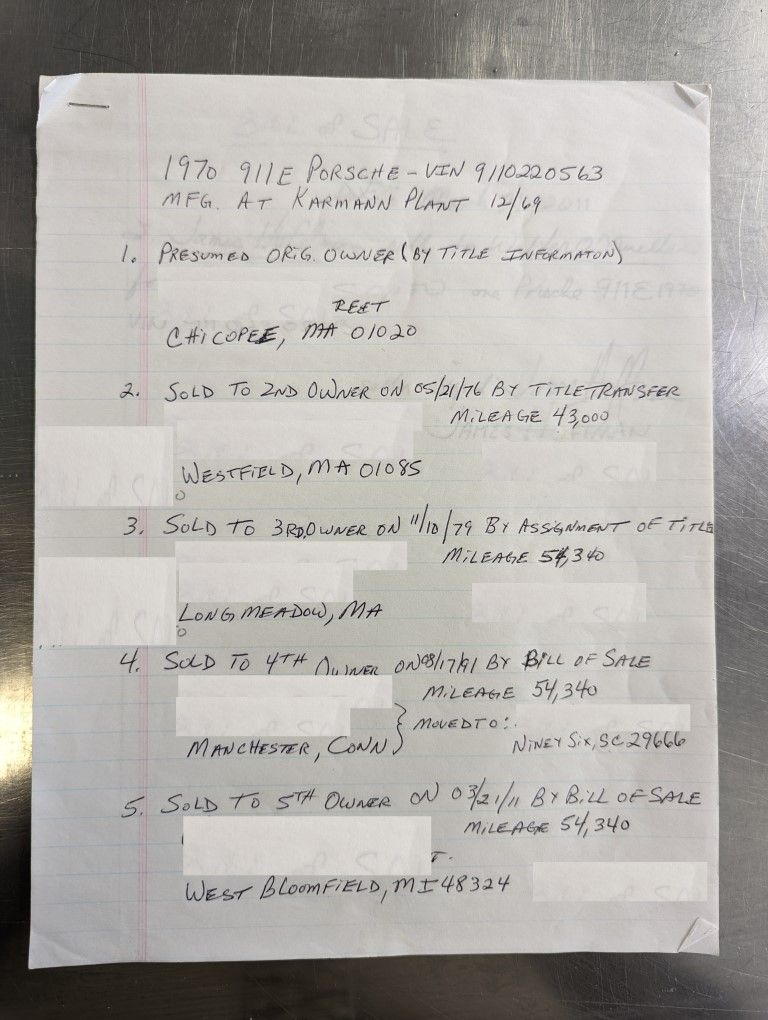 1970 911E PORSCHE - VIN 9110220563
MFG. AT KARMANN PLANT 12/69
1. PRESUMED ORIG. OWNER (BY TITLE INFORMATON)
REET
CHICOPEE, MA 01020
2. SOLD TO 2ND OWNER ON 05/21/76 BY TITLE TRANSFER
MILEAGE 43,000
WESTFIELD, MA 01085
3. SOLD TO 3RD. OWNER ON 11/10/79 BY ASSIGNMENT OF TITLE
MILEAGE 54,340
LONGMEADOW, MA
4. SOLD TO 4TH OWNER ON 08/17/81 BY BILL OF SALE
MILEAGE 54,340
MOVED TO:
MANCHESTER, CONN
NINEY SIX, SC 29666
5. SOLD TO 5TH OWNER ON 03/21/11 BY BILL OF SALE
MILEAGE 54,340
T.
WEST BLOOMFIELD, MI 48324